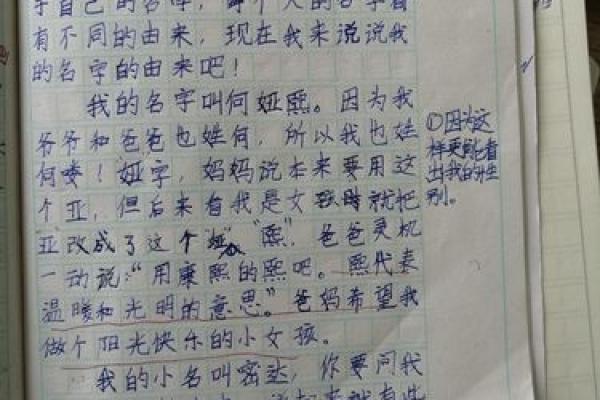 于自己的名字，每个人的名字都
有不同的由来，现在我来说说我
的名字的由来吧！
我的名字叫何娅熙。因为我
爷爷和爸爸也姓何，所以我也姓
何喽！娅字，妈妈说本来要用这
个亚，但后来看我是女孩时就把
亚改成了这个"娅"。"熙"，爸爸灵机
一动说："用康熙的熙吧。熙代表
温暖和光明的意思。"爸妈希望我
做个阳光快乐的小女孩。
我的小名叫密达，你要问我
①因为这
样更能看
出我的性
别。